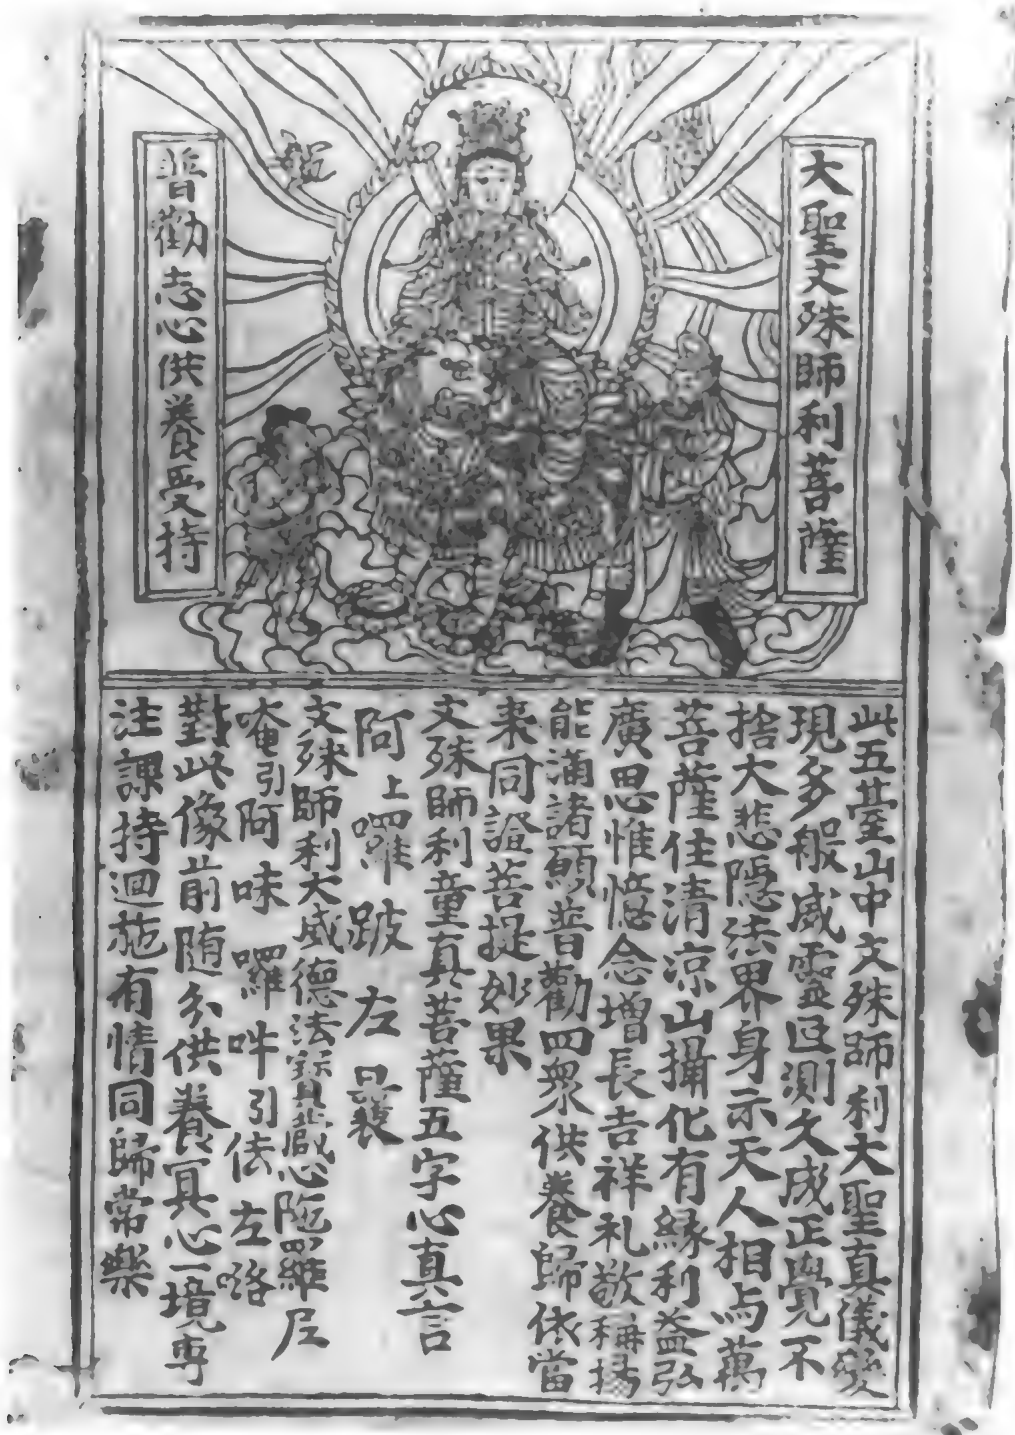 大聖文殊師利菩薩
普勸志心供養受持
此五臺山中文殊師利大聖真儀變
現多般威靈叵測久成正覺不
捨大悲隱法界身示天人相与萬
菩薩住清涼山攝化有緣利益弘
廣思惟憶念增長吉祥礼敬稱揚
能滿諸願普勸四衆供養歸依當
来同證菩提妙果
文殊師利童真菩薩五字心真言
阿上囉 跛 左 曩
文殊師利大威德法寶藏心陁羅尼
唵引阿味 囉 吽引佉左咯
對此像前随分供養冥心一境専
注課持迴施有情同歸常樂